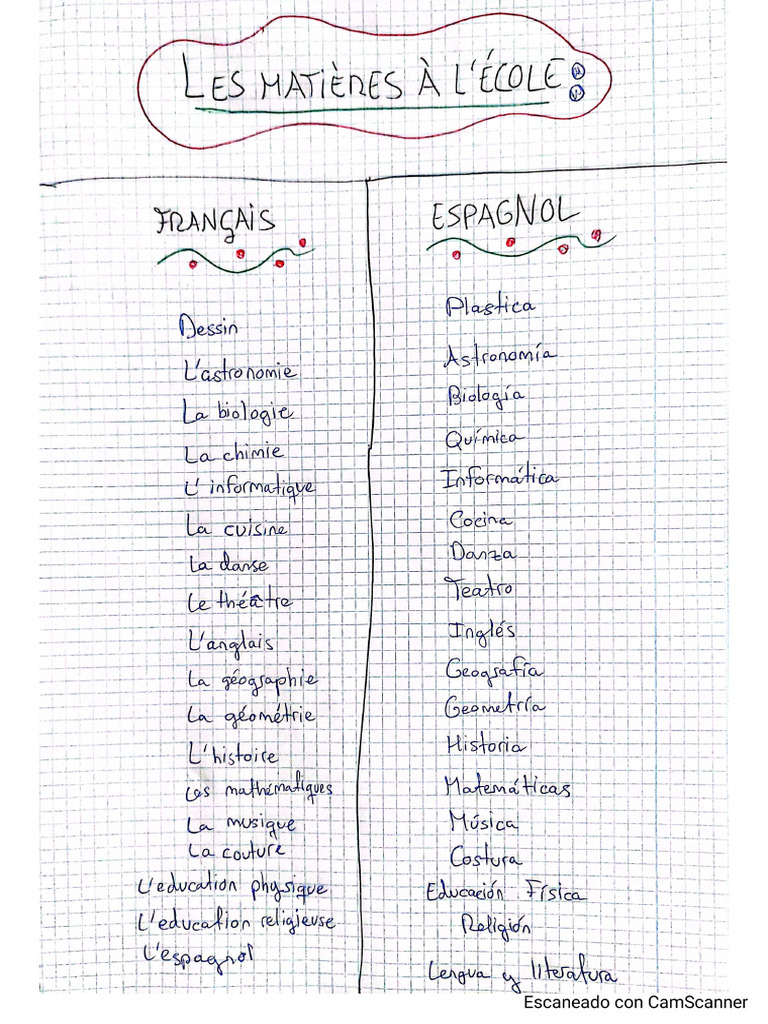 LES MATIÈRES À L'ÉCOLE:
FRANÇAIS
Dessin
L'astronomie
La biologie
La chimie
L'informatique
La cuisine
La danse
Le théâtre
L'anglais
La géographie
La géométrie
L'histoire
Les mathématiques
La musique
La couture
L'education physique
L'education religieuse
L'espagnol
ESPAGNOL
Plastica
Astronomía
Biología
Química
Informática
Cocina
Danza
Teatro
Inglés
Geografía
Geometría
Historia
Matemáticas
Música
Costura
Educación Física
Religión
Lengua y literatura
Escaneado con CamScanner